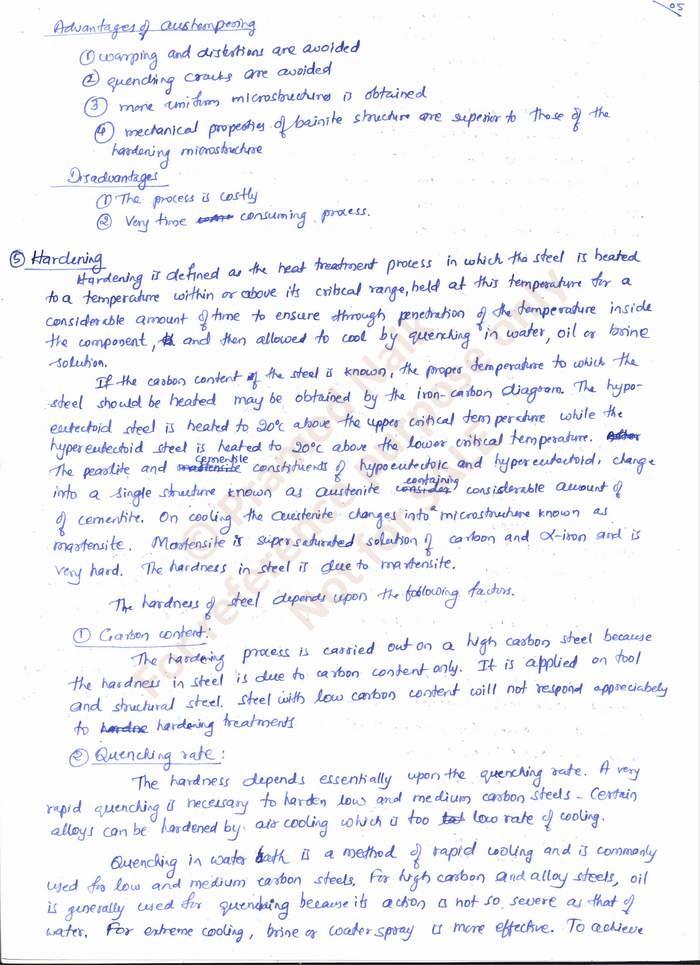 05
Advantages of austempering
① warping and distortions are avoided
② quenching cracks are avoided
③ more uniform microstructure is obtained
④ mechanical properties of bainite structure are superior to those of the
hardening microstructure
Disadvantages
① The process is costly
② Very time consuming process.
⑤ Hardening
Hardening is defined as the heat treatment process in which the steel is heated
to a temperature within or above its critical range, held at this temperature for a
considerable amount of time to ensure through penetration of the temperature inside
the component, and then allowed to cool by quenching in water, oil or brine
solution.
If the carbon content of the steel is known, the proper temperature to which the
steel should be heated may be obtained by the iron-carbon diagram. The hypo-
eutectoid steel is heated to 20°c above the upper critical temperature while the
hypereutectoid steel is heated to 20°c above the lower critical temperature.
The pearlite and cementile constituents of hypoeutectoic and hypereutectoid, change
into a single structure known as austenite containing considerable amount of
of cementite. On cooling the austenite changes into a microstructure known as
martensite. Martensite is supersaturated solution of carbon and α-iron and is
very hard. The hardness in steel is due to martensite.
The hardness of steel depends upon the following factors.
① Carbon content:
The hardening process is carried out on a high carbon steel because
the hardness in steel is due to carbon content only. It is applied on tool
and structural steel. Steel with low carbon content will not respond appreciabely
to hardening treatments
② Quenching rate:
The hardness depends essentially upon the quenching rate. A very
rapid quenching is necessary to harden low and medium carbon steels - Certain
alloys can be hardened by air cooling which is too low rate of cooling.
Quenching in water bath is a method of rapid cooling and is commonly
used for low and medium carbon steels. For high carbon and alloy steels, oil
is generally used for quenching because its action is not so severe as that of
water. For extreme cooling, brine or water spray is more effective. To achieve
© Pramod Naik
For reference purpose only
Not for sale